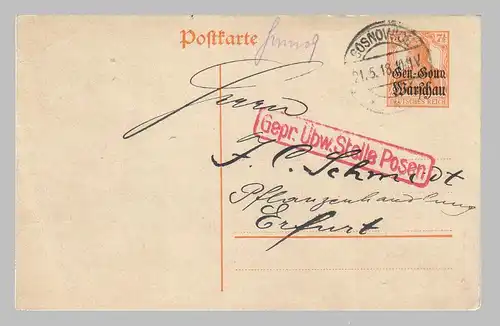 Postkarte
7½
SOSNOWICE
21.5.18. 
Gen.-Gouv.
Warschau
DEUTSCHES REICH
Herrn
Gepr. Übw. Stelle Posen
J. C. Schmidt
Pflanzenhandlung
Erfurt